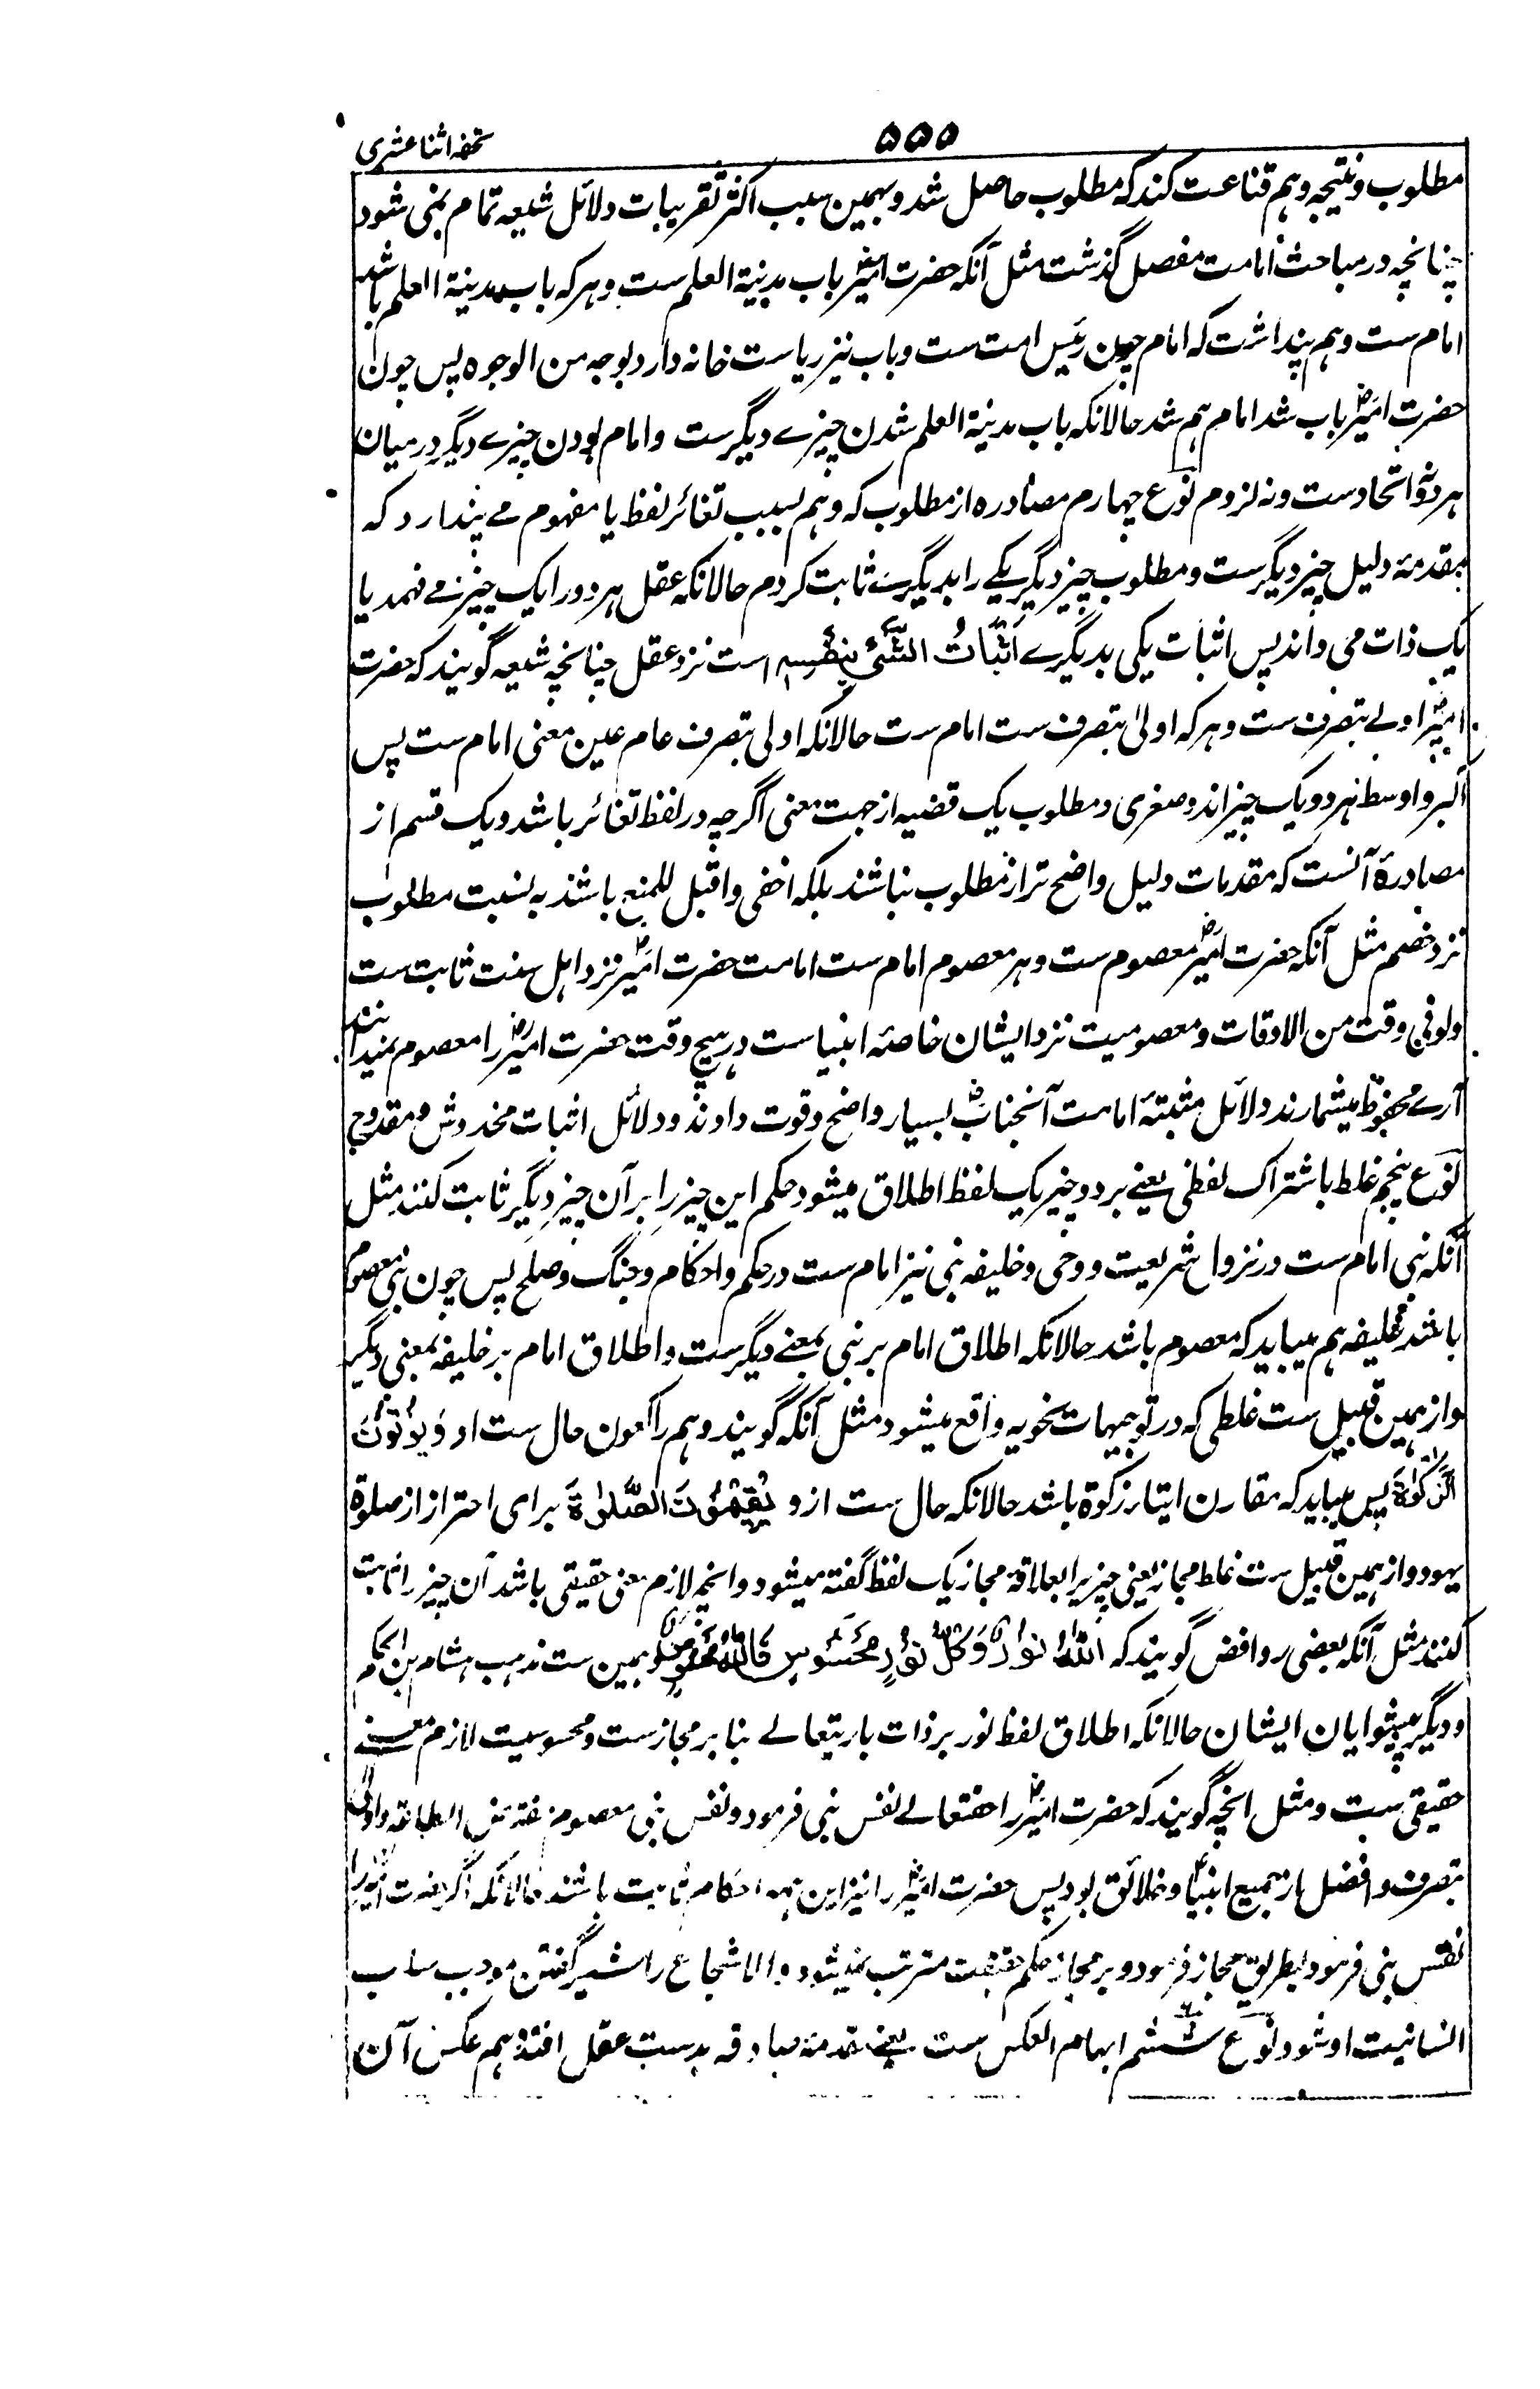 ۵۵۵
تحفہ اثنا عشری
مطلوب و نتیجہ وہم قناعت کند کہ مطلوب حاصل شد و بہمین سبب اکثر تقریبات دلائل شیعہ تمام نمی شود
چنانچہ در مباحث امامت مفصل گذشت مثل آنکہ حضرت امیرؓ باب مدینۃ العلم ست و ہر کہ باب مدینۃ العلم باشد
امام ست وہم پنداشت کہ امام چون رئیس امت ست و باب نیز ریاست خانہ دارد بوجہ من الوجوہ پس چون
حضرت امیرؓ باب شد امام ہم شد حالانکہ باب مدینۃ العلم شدن چیزے دیگر ست و امام بودن چیزے دیگر در میان
ہر دو اتحاد ست و نہ لزوم نوع چہارم مصادرہ از مطلوب کہ وہم بسبب تغائر لفظ یا مفہوم مے پندارد کہ
مقدمۂ دلیل چیز دیگر ست و مطلوب چیز دیگر یکے را بدیگرے ثابت کردم حالانکہ عقل ہر دو را یک چیز مے فہمد یا
یک ذات می داند پس اثبات یکی بدیگرے اَثْبَاتُ الشَّئِ بِنَفْسِہٖ است نزد عقل چنانچہ شیعہ گویند کہ حضرت
امیرؓ اولے بتصرف ست و ہر کہ اولیٰ بتصرف ست امام ست حالانکہ اولی بتصرف عام عین معنی امام ست پس
اکبر و اوسط ہر دو یک چیز اند و صغری و مطلوب یک قضیہ از جہت معنی اگرچہ در لفظ تغائر باشد و یک قسم از
مصادرہ آنست کہ مقدمات دلیل واضح تر از مطلوب نباشند بلکہ اخفی و اقبل للمنع باشند بہ نسبت مطلوب
نزد خصم مثل آنکہ حضرت امیرؓ معصوم ست و ہر معصوم امام ست امامت حضرت امیرؓ نزد اہل سنت ثابت ست
ولو فی وقت من الاوقات و معصومیت نزد ایشان خاصۂ انبیاست در ہیچ وقت حضرت امیرؓ را معصوم نمیدانند
آرے محفوظ میشمارند و دلائل مثبتۂ امامت آنجنابؓ بسیار واضح و قوت دارند و دلائل اثبات مخدوش و مقدوح
نوع پنجم غلط باشتراک لفظی یعنے بر دو چیز یک لفظ اطلاق میشود حکم این چیز را بر آن چیز دیگر ثابت کنند مثل
آنکہ نبی امام ست در نزول شریعت و وحی و خلیفہ نبی نیز امام ست در حکم و احکام و جنگ و صلح پس چون نبی معصوم
باشد خلیفہ ہم میباید کہ معصوم باشد حالانکہ اطلاق امام بر نبی بمعنے دیگر ست و اطلاق امام بر خلیفہ بمعنی دیگر
و از ہمین قبیل ست غلطی کہ در توجیہات نحویہ واقع میشود مثل آنکہ گویند وہم راکعون حال ست از وَیُؤْتُوْنَ
الزَّکٰوۃَ پس میباید کہ مقارن ایتار زکوۃ باشد حالانکہ حال ست از و یُقِیْمُوْنَ الصَّلٰوۃَ برای احتراز از صلوۃ
یہود و از ہمین قبیل ست غلط مجاز یعنی چیزیرا بعلاقۂ مجاز یک لفظ گفتہ میشود و انچہ لازم معنی حقیقی باشد آن چیز را ثابت
کنند مثل آنکہ بعضی روافض گویند کہ اللّٰہُ نُوْرٌ وَکُلُّ نُوْرٍ مَحْسُوْسٍ فَاللّٰہُ مَحْسُوْسٌ و ہمین ست مذہب ہشام بن الحکم
و دیگر پیشوایان ایشان حالانکہ اطلاق لفظ نور بر ذات باریتعالے بنا بر مجاز ست و محسوسیت لازم معنے
حقیقی ست و مثل انچہ گویند کہ حضرت امیرؓ را حقتعالے نفس نبی فرمود و نفس نبی معصوم مفترض الطاعۃ و اولی
بتصرف و افضل از جمیع انبیا و خلائق بود پس حضرت امیرؓ را نیز این ہمہ احکام ثابت باشند حالانکہ اگر حضرت امیر را
نفس نبی فرمود بطریق مجاز فرمود و بر مجاز حکم حقیقت مترتب نمیشود و الا شجاع را شیر گفتن موجب سلب
انسانیت او شود نوع ششم ابہام العکس ست یعنے مقدمۂ صادقہ بدست عقل افتد وہم عکس آن